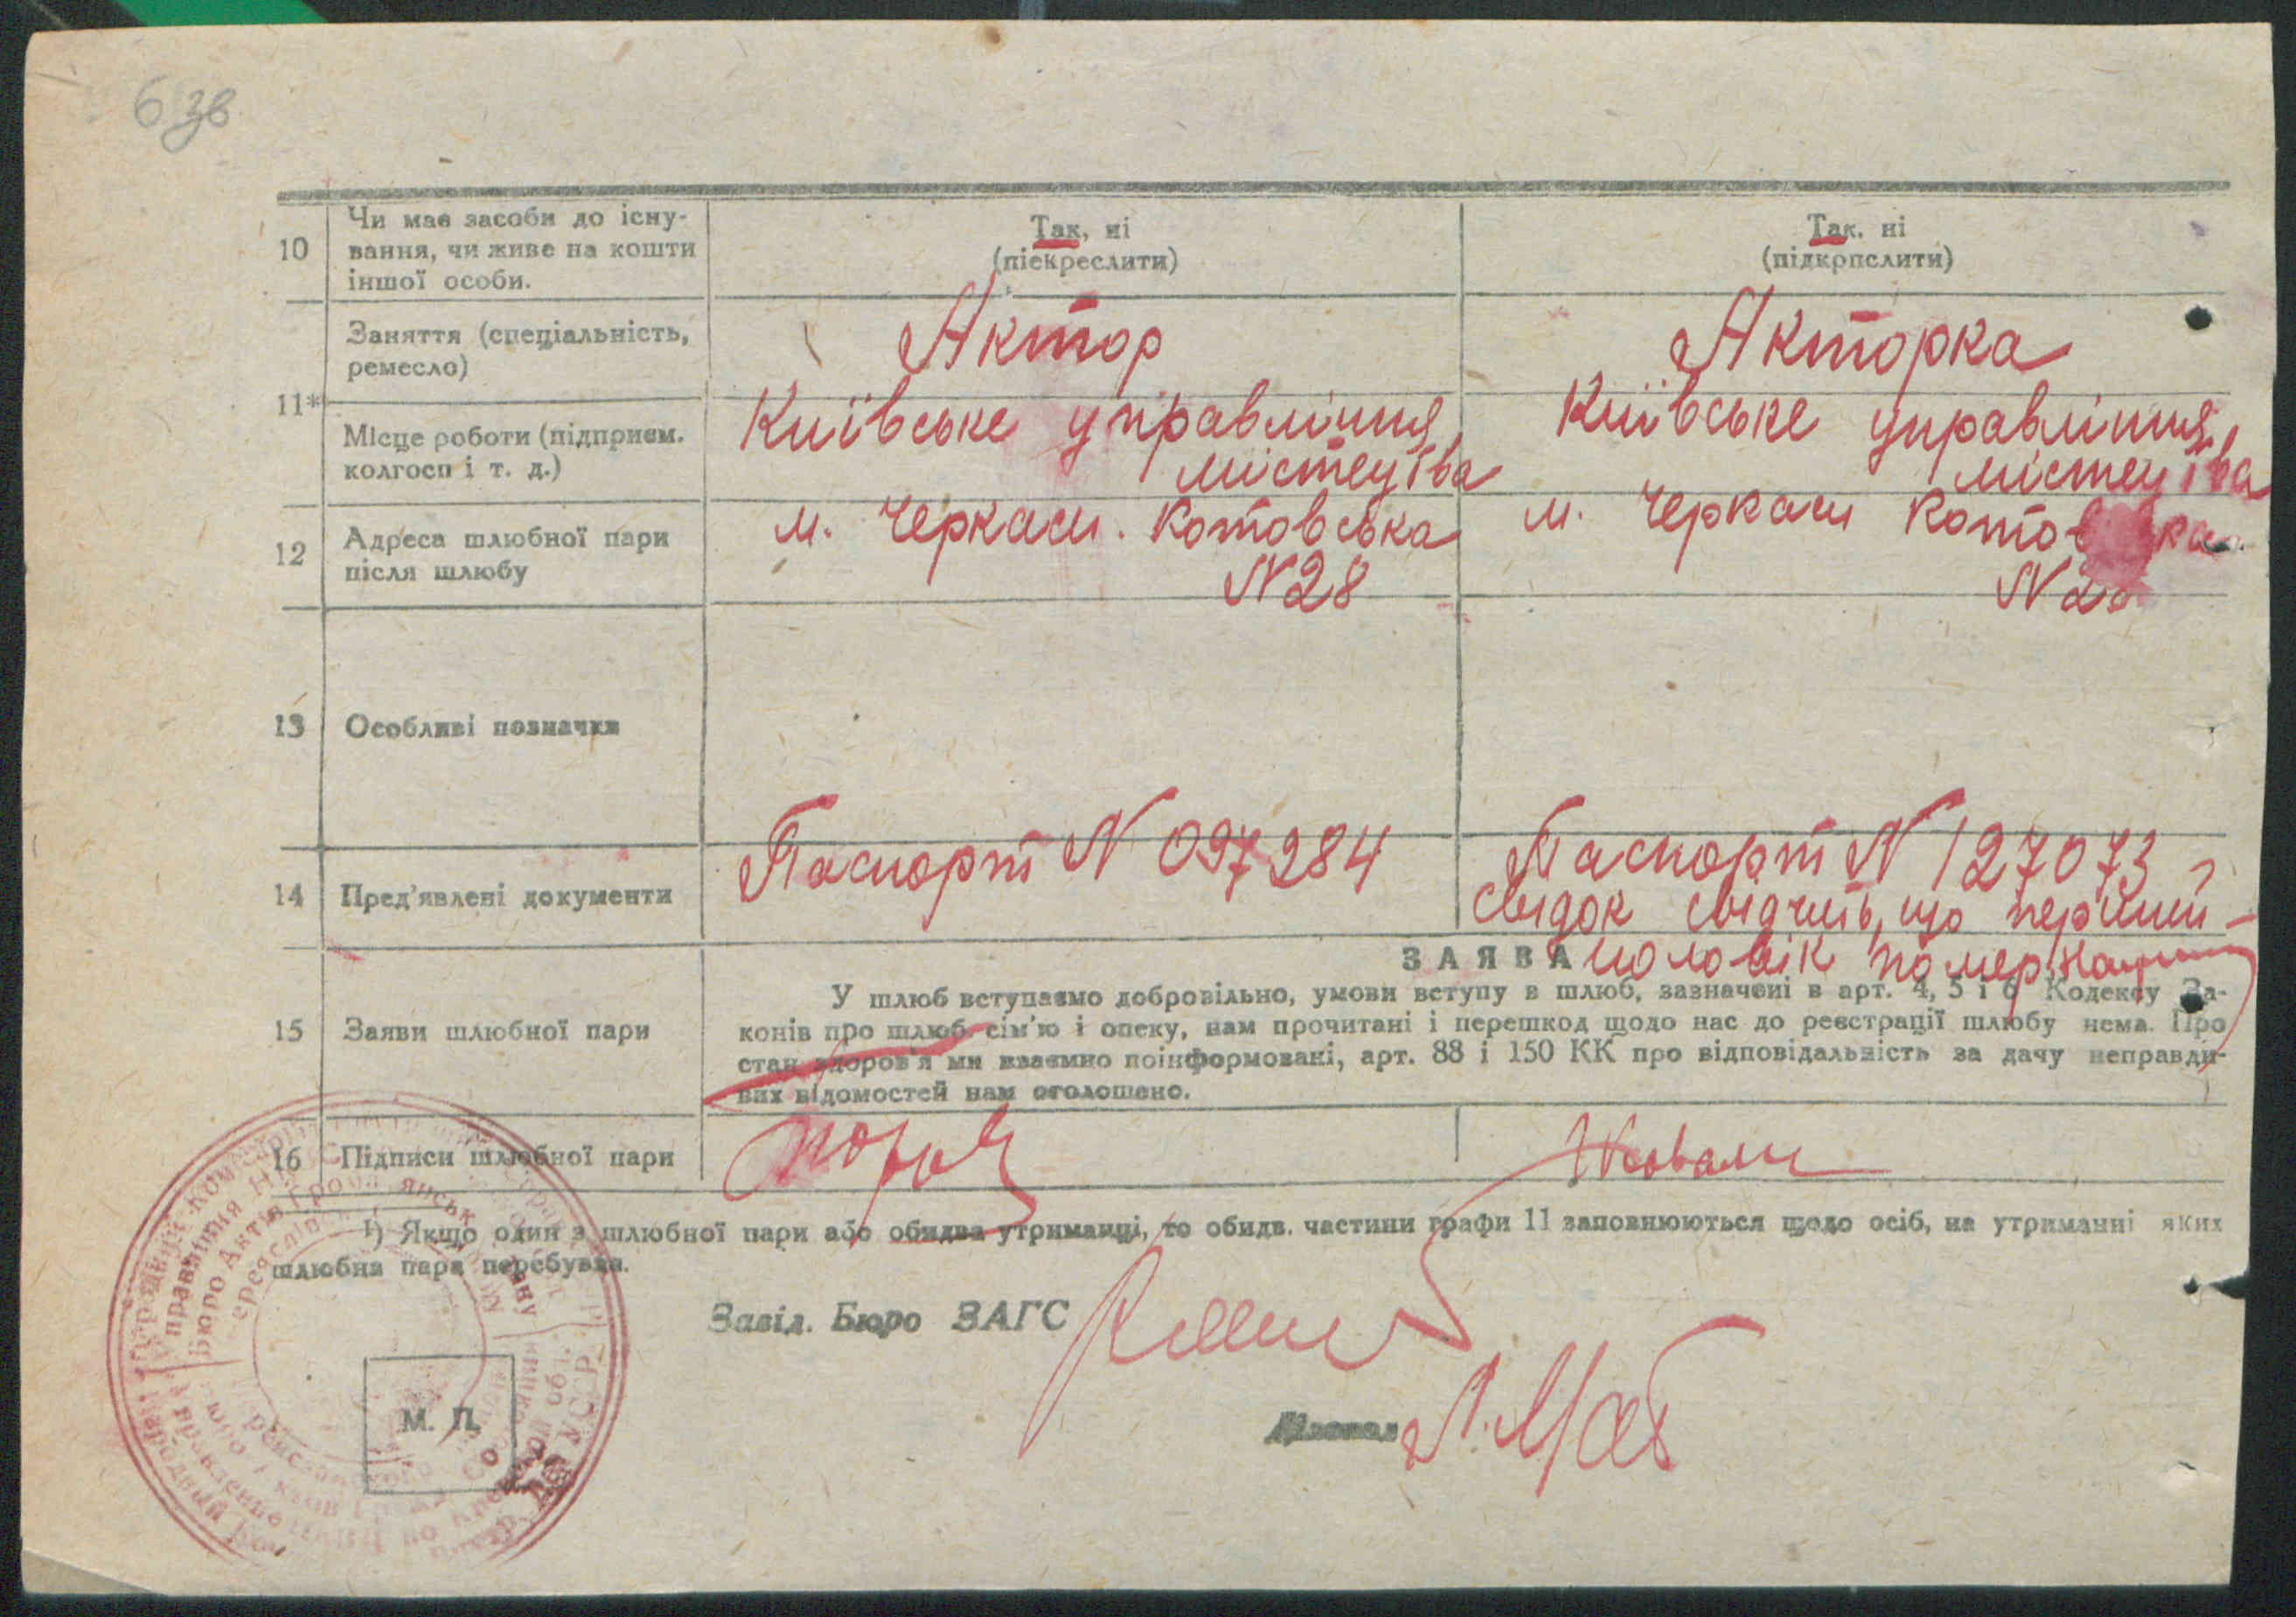 6 зв
10 Чи має засоби до існу-
вання, чи живе на кошти
іншої особи.
Так, ні
(піекреслити)
Так. ні
(підкрпслити)
11*
Заняття (спеціальність,
ремесло)
Актор
Акторка
Місце роботи (підприєм.
колгосп і т. д.)
Київське управління
містецтва
Київське управління
містецтва
12 Адреса шлюбної пари
після шлюбу
м. Черкаси. Котовська
N 28
м. Черкаси
13 Особливі позначки
14 Пред'явлені документи
Паспорт N 097284
Паспорт N 127073
свідок свідчить, що перший
чоловік помер.
15 Заяви шлюбної пари
ЗАЯВА
У шлюб вступаємо добровільно, умови вступу в шлюб, зазначені в арт. 4, 5 і 6 Кодексу За-
конів про шлюб, сім'ю і опеку, нам прочитані і перешкод щодо нас до реєстрації шлюбу нема. Про
стан здоров'я ми взаємно поінформовані, арт. 88 і 150 КК про відповідальність за дачу неправди-
вих відомостей нам оголошено.
16 Підписи шлюбної пари
¹) Якщо один з шлюбної пари або обидва утриманці, то обидв. частини графи 11 заповнюються щодо осіб, на утриманні яких
шлюбна пара перебувла.
Завід. Бюро ЗАГС
М. П.